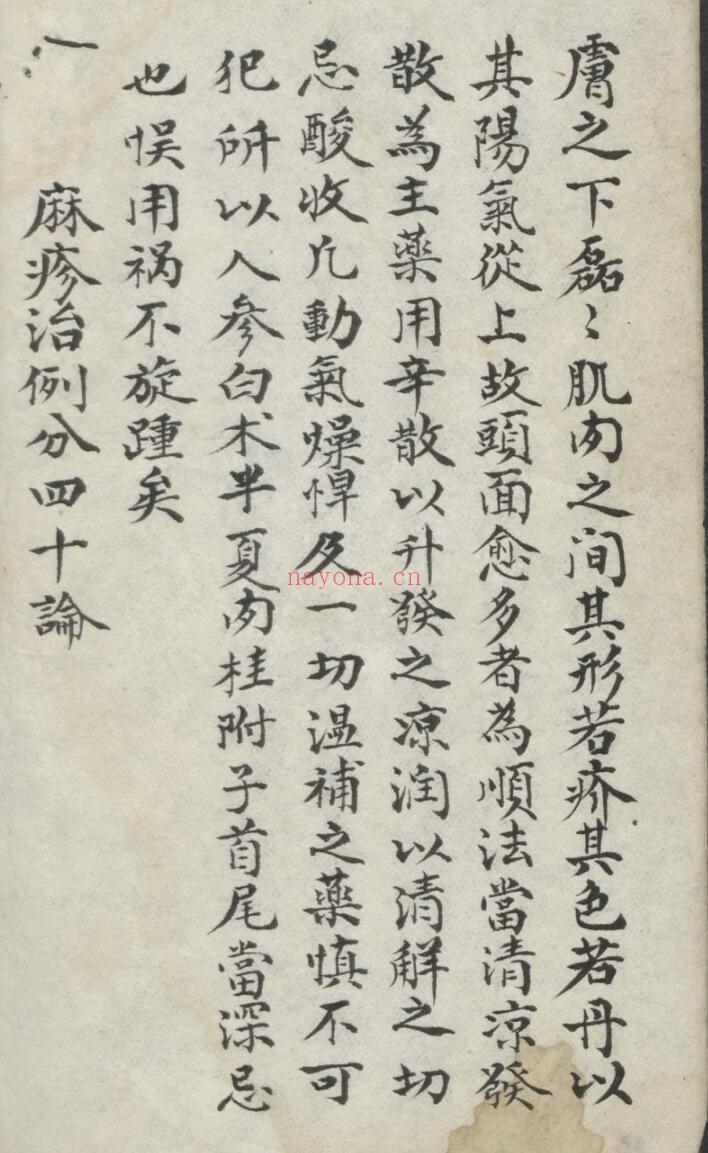 膚之下磊〻肌肉之间其形若疥其色若丹以
其陽氣從上故頭面愈多者為順法當清凉發
散為主藥用辛散以升發之凉润以清解之切
忌酸收凢動氣燥悍及一切温補之藥慎不可
犯所以人參白术半夏肉桂附子首尾當深忌
也悮用祸不旋踵矣
麻疹治例分四十論
nayona.cn